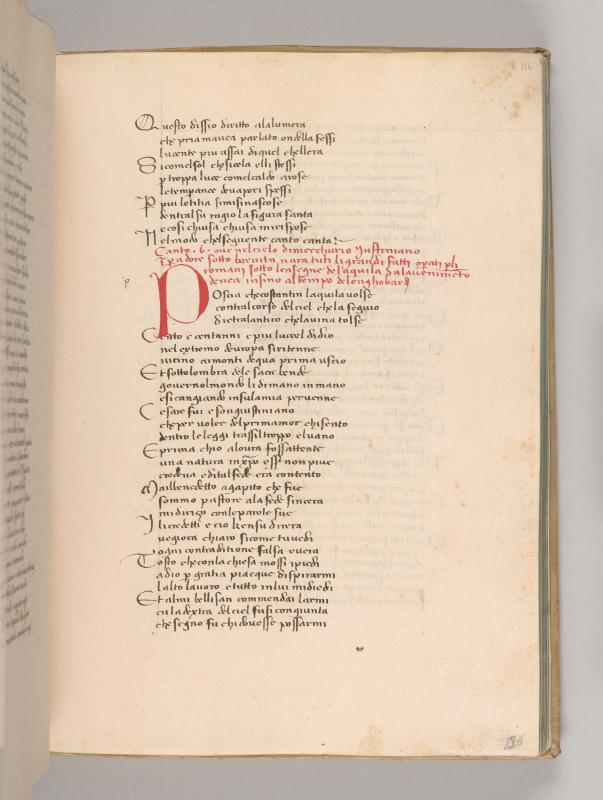 126
Questo dissio diritto alalumera
che pria mavea parlato ondella fessi
lucente piu assai diquel chellera
Sicomelsol chesicela elli stessi
p troppa luce comelcaldo arose
letemperance devapori spessi
P piu letitia simisinascose
dentralsu ragio la figura santa
e cosi chiusa chiusa mirispose
Nelmodo chelsequente canto canta
Canto .6. ove nelcielo dimerchurio Justiniano
sotto brevita nara tuti li grandi fatti opati pli
romani sotto lensegne de laquila
denea insino altempo delonghobardi
p
Poscia checostantin laquila volse
contralcorso delciel chela seguio
dietralantico chelavina tolse
Cento e centanni e piu luccel didio
nel extremo deuropa siritenne
vicino aimonti dequa prima uscio
Et sottolombra dele sacre penne
governolmondo li dimano in mano
esi cangiando insulamia pervenne
Cesare fui e songiustiniano
cheper voler delprimamor chisento
dentro leleggi trassiltroppo elvano
E prima chio alovra fossattento
una natura in xpo esser non piue
credeva edital fede era contento
Maillenedetto agapito che fue
sommo pastore ala fede sincera
midiriço conleparole sue
Ilicredetti e cio kensu direra
vegiora chiaro sicome tuvedi
ogni contraditione falsa e vera
Tosto checonla chiesa mossi ipiedi
adio p gratia piacque dispirarmi
lalto lavoro e tutto inlui midiedi
Et almi bellisan commendai larmi
cu la dextra delciel fusi congiunta
che segno fu chi dovesse possarmi
126